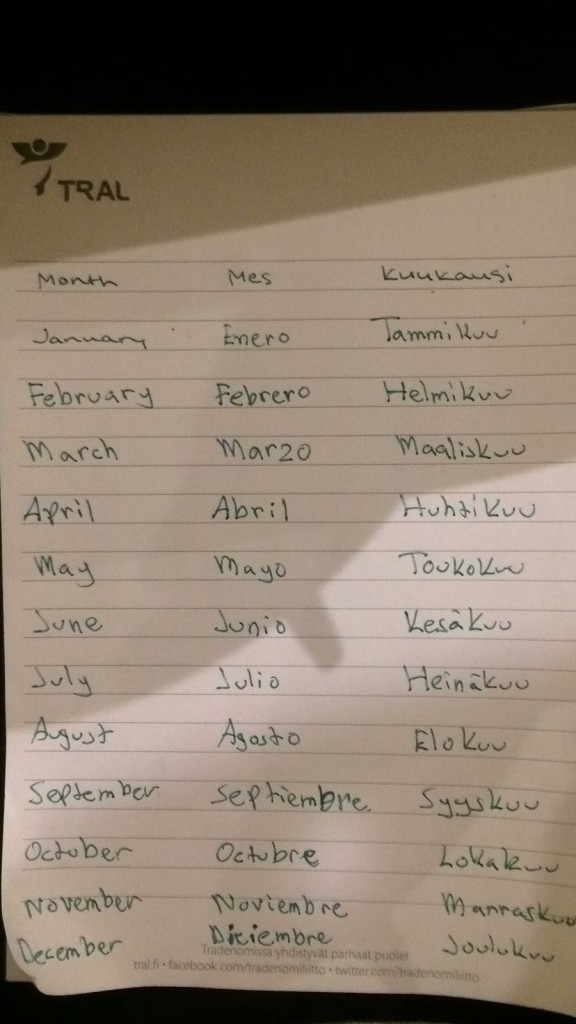 TRAL
Month Mes Kuukausi
January Enero Tammikuu
February Febrero Helmikuu
March Marzo Maaliskuu
April Abril Huhtikuu
May Mayo Toukokuu
June Junio Kesäkuu
July Julio Heinäkuu
August Agosto Elokuu
September Septiembre Syyskuu
October Octubre Lokakuu
November Noviembre Marraskuu
December Diciembre Joulukuu
Tradenomissa yhdistyvät parhaat puolet
tral.fi • facebook.com/tradenomiliitto • twitter.com/tradenomiliitto